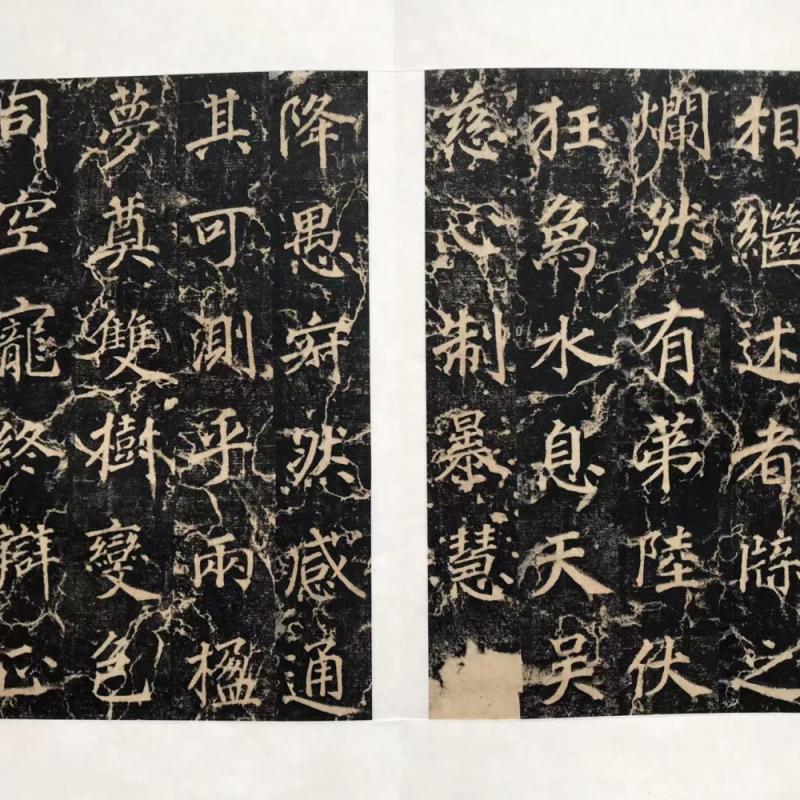 相繼述者牒之
爛然有弟陸伏
狂象水息天吴
慈心制暴慧
降愚寂然感通
其可測乎兩楹
夢奠雙樹變色
司空寵終辯正